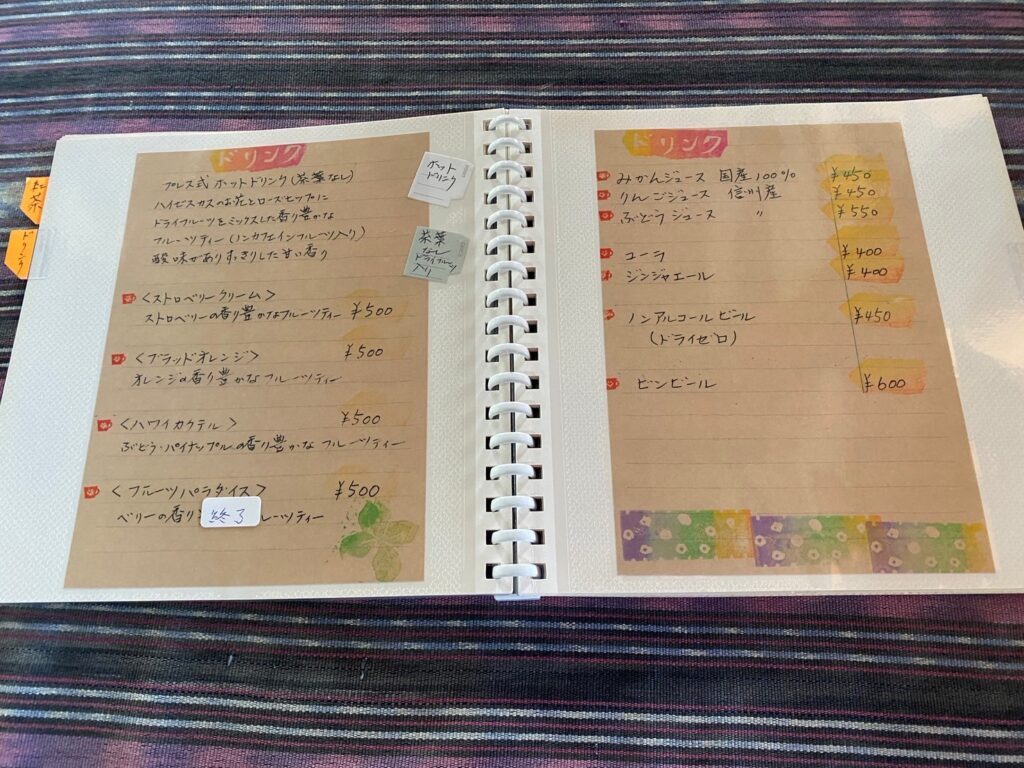 紅茶
ドリンク
ドリンク
プレス式 ホットドリンク (茶葉なし)
ハイビスカスのお花とローズヒップに
ドライフルーツをミックスした香り豊かな
フルーツティー (ノンカフェインフルーツ入り)
酸味がありすっきりした甘い香り
ホット
ドリンク
茶葉
なし
ドライフルーツ
入り
<ストロベリークリーム>
ストロベリーの香り豊かなフルーツティー ¥500
<ブラッドオレンジ> ¥500
オレンジの香り豊かなフルーツティー
<ハワイカクテル> ¥500
ぶどう・パイナップルの香り豊かな フルーツティー
<フルーツパラダイス> ¥500
ベリーの香り ルーツティー
終了
ドリンク
みかんジュース 国産100% ¥450
りんごジュース 信州産 ¥450
ぶどうジュース 〃 ¥550
コーラ ¥400
ジンジャエール ¥400
ノンアルコールビール ¥450
(ドライゼロ)
ビンビール ¥600